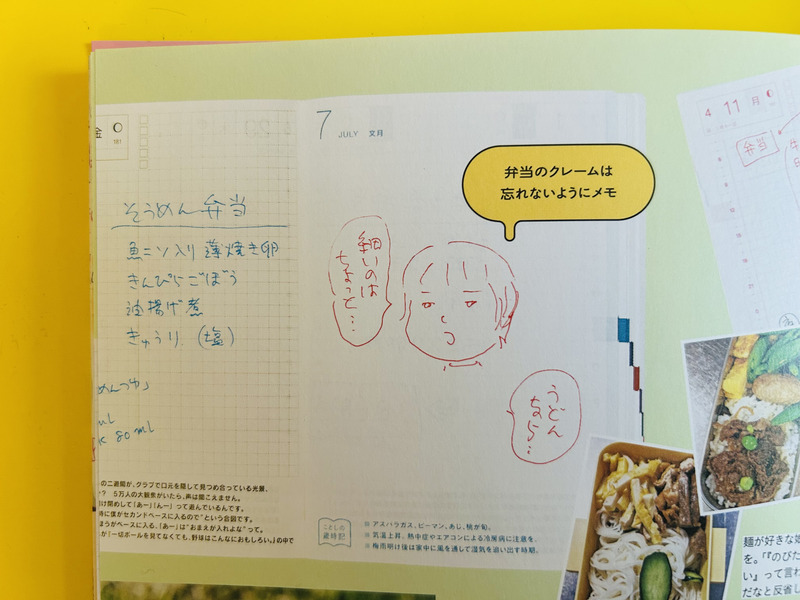 金
181
そうめん弁当
魚ニソ入り 薄焼き卵
きんぴらごぼう
油揚げ煮
きゅうり (塩)
めんつゆ
mL
80 mL
の二遊間が、グラブで口元を隠して見つめ合っている光景、
? 5万人の大観衆がいたら、声は聞こえません。
け閉めして「あー」「んー」って遊んでいるんです。
時に僕がセカンドベースに入るので"という合図です。
ほうがベースに入る、「あー」は"おまえが入れよな"って。
か「一切ボールを見てなくても、野球はこんなにおもしろい。」の中で
7
JULY 文月
弁当のクレームは
忘れないようにメモ
細いのは
ちょっと…
うどん
なら…
ことしの
歳時記
アスパラガス、ピーマン、あじ、桃が旬。
気温上昇。熱中症やエアコンによる冷房病に注意を。
梅雨明け後は家中に風を通して湿気を追い出す時期。
4 11 月
弁当
麺が好きな
を。「『のびた
い』って言わ
だなと反省し